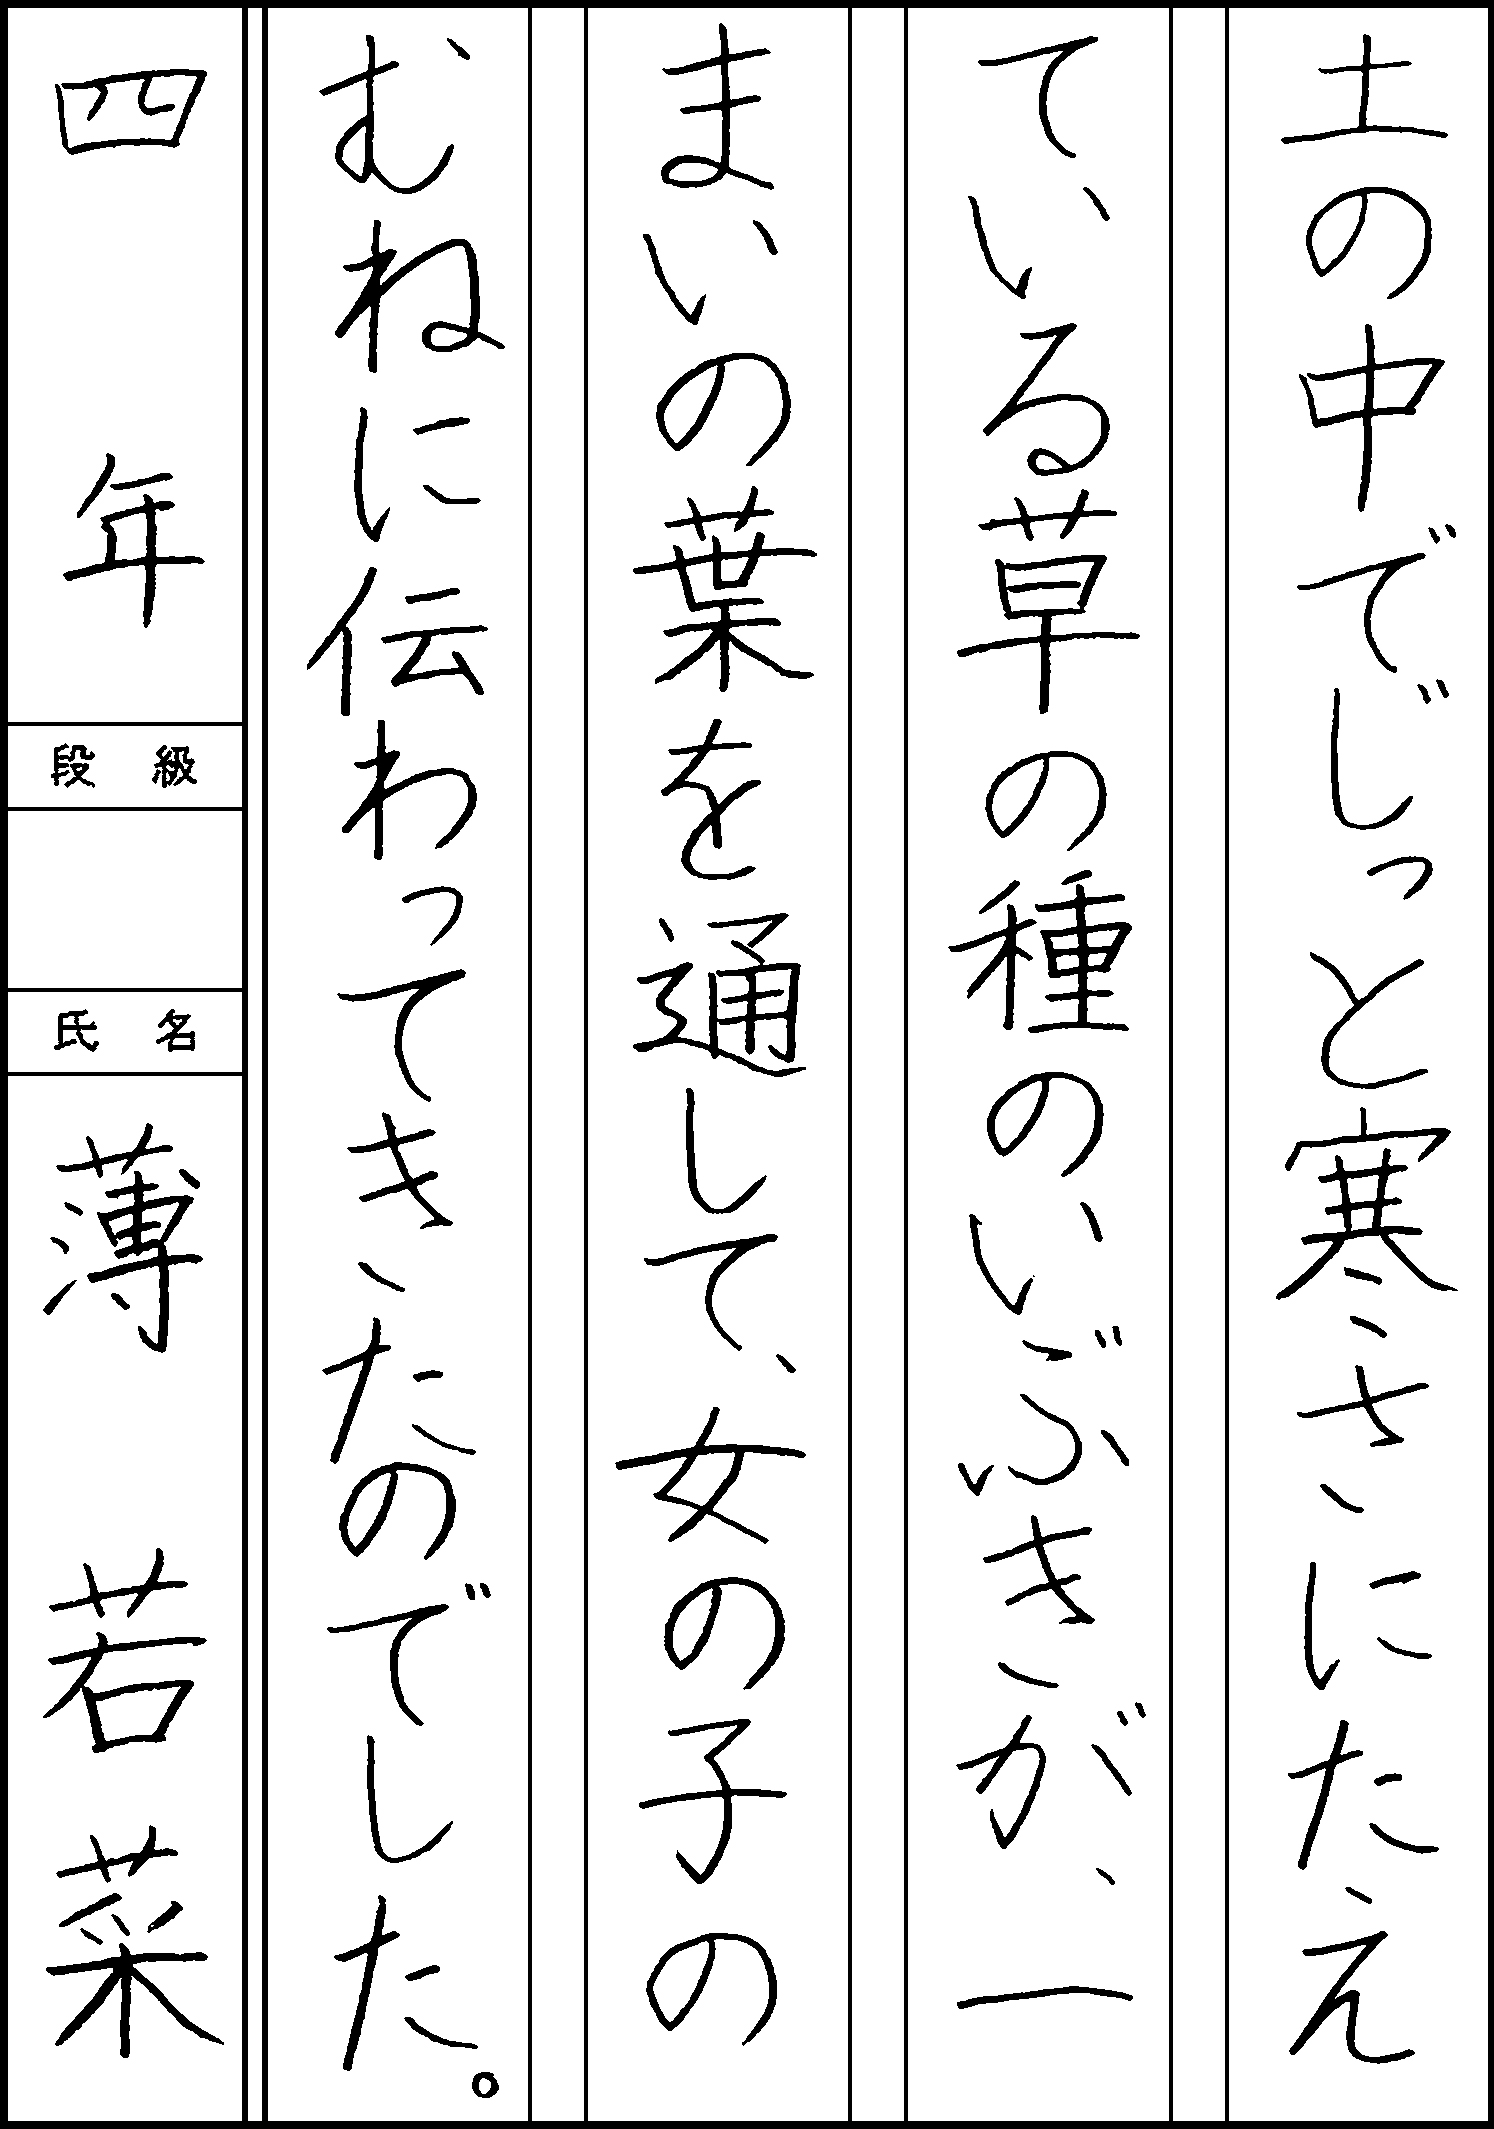 土の中でじっと寒さにたえ
ている草の種のいぶきが、一
まいの葉を通して、女の子の
むねに伝わってきたのでした。
四年
段級
氏名
薄若菜